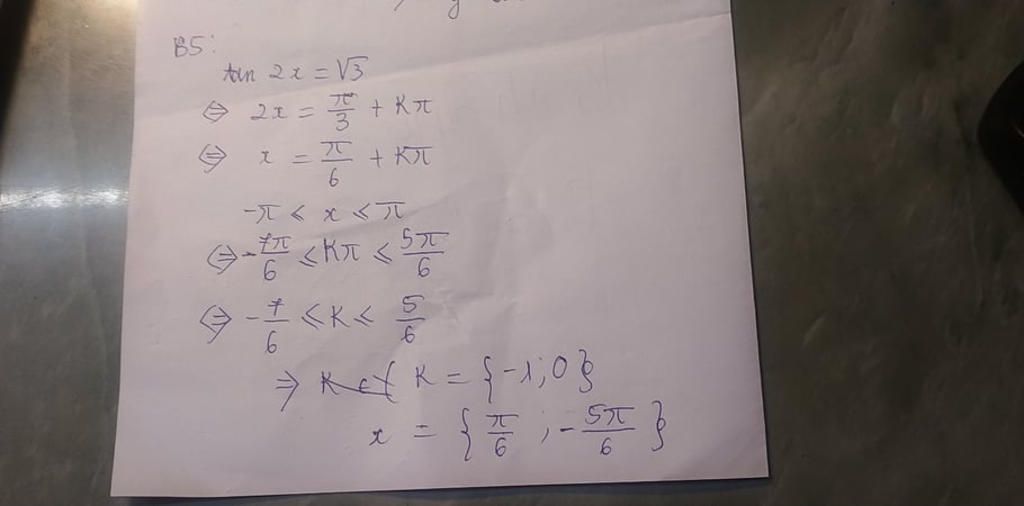 y
B5:
tan 2x = √3
⇔ 2x = π/3 + Kπ
⇔ x = π/6 + Kπ
-π ≤ x ≤ π
⇔ -7π/6 ≤ Kπ ≤ 5π/6
⇔ -7/6 ≤ K ≤ 5/6
⇒ K = {-1; 0}
x = {π/6 ; -5π/6}